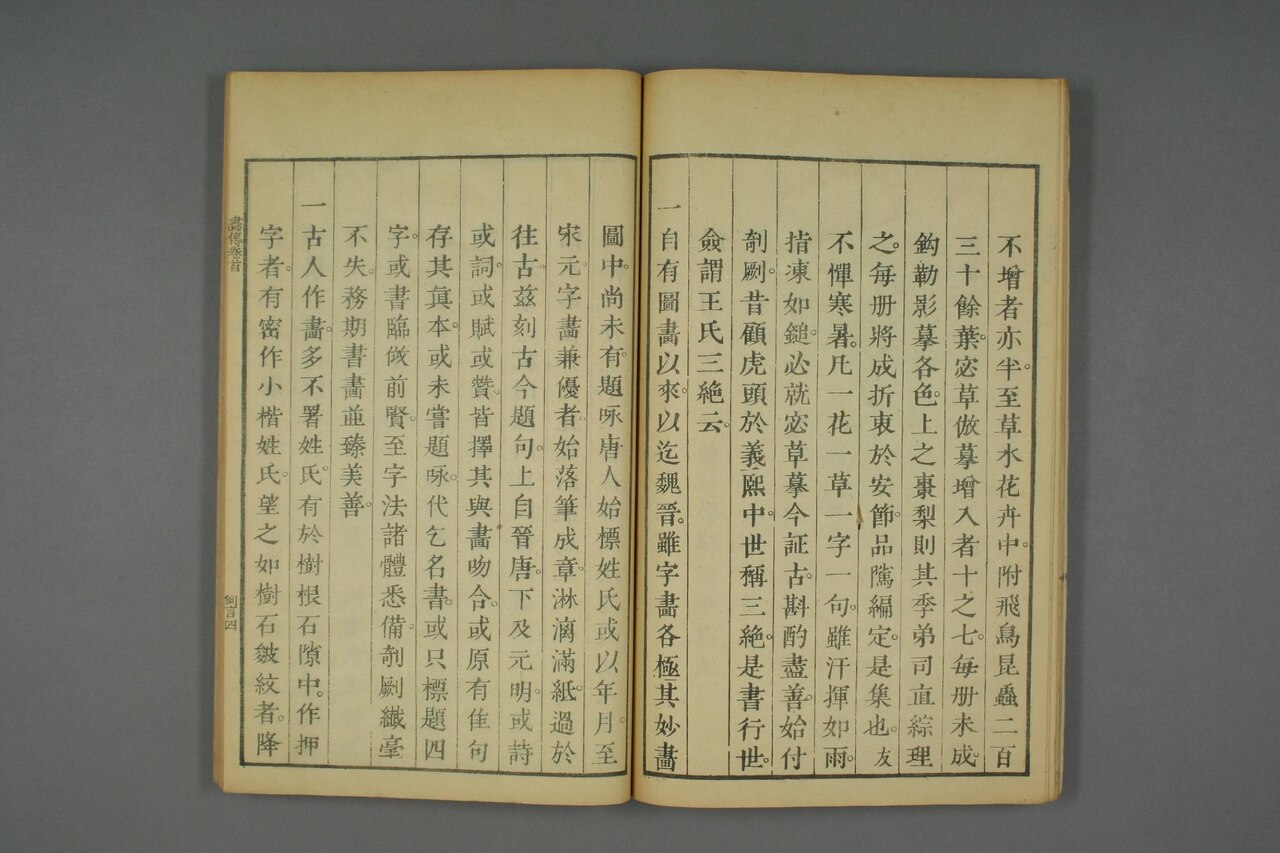 不增者亦半。至草木花卉中。附飛鳥昆蟲二百
三十餘葉。宓草倣摹增入者十之七。每册未成。
鈎勒影摹各色。上之棗梨則其季弟司直綜理
之。每册將成折衷於安節。品隲編定。是集也。友
不憚寒暑。凡一花一草一字一句。雖汗揮如雨。
指凍如鎚。必就宓草摹今証古。斟酌盡善。始付
剞劂。昔顧虎頭於義熙中。世稱三絶。是書行世。
僉謂王氏三絶云。
一自有圖畫以來。以迄魏晉。雖字畫各極其妙畫
圖中。尚未有。題咏唐人始標姓氏或以年月。至
宋元。字畫兼優者。始落筆成章。淋漓滿紙。過於
往古。兹刻古今題句。上自晉唐。下及元明。或詩
或詞。或賦或贊。皆擇其與畫吻合。或原有佳句
存其眞本。或未嘗題咏。代乞名書。或只標題四
字。或書臨倣前賢。至字法諸體悉備。剞劂纖毫
不失。務期書畫並臻美善。
一古人作畫。多不署姓氏。有於樹根石隙中。作押
字者。有密作小楷姓氏。望之如樹石皴紋者。降
畫傳卷首
例言四